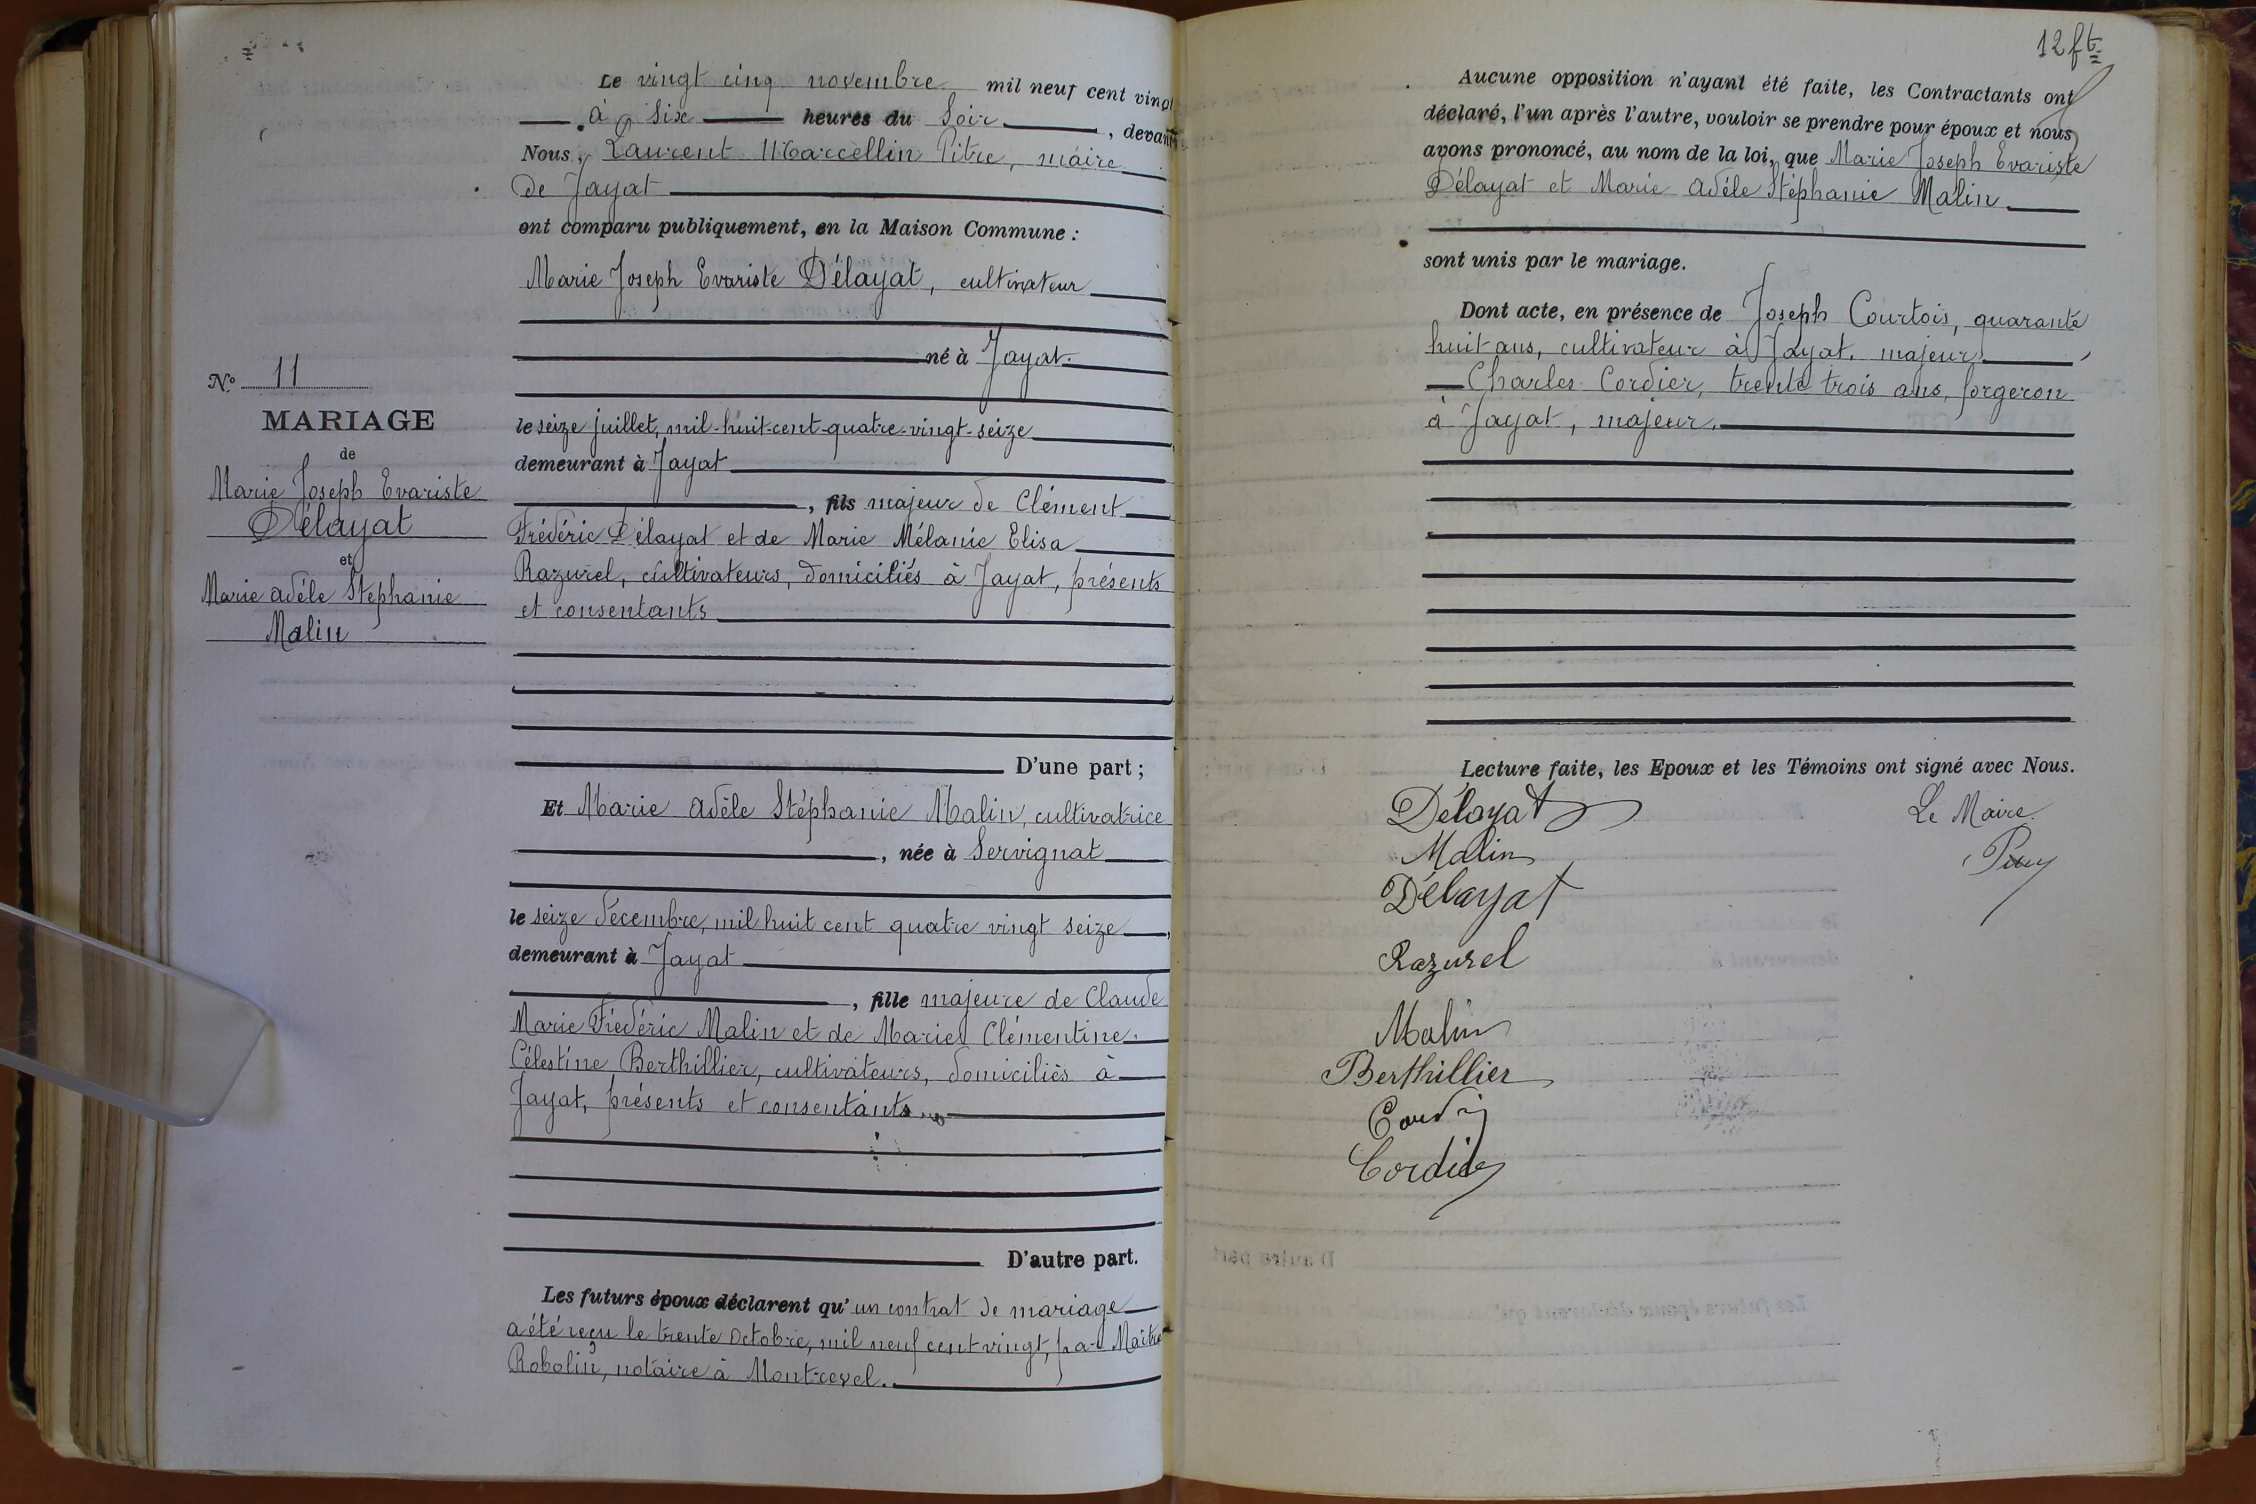 Le vingt cinq novembre mil neuf cent vingt
à six heures du Soir, devant
Nous, Laurent Marcellin Pitre, maire
de Jayat
ont comparu publiquement, en la Maison Commune :
Marie Joseph Evariste Délayat, cultivateur
né à Jayat
le seize juillet, mil-huit-cent-quatre-vingt-seize
demeurant à Jayat
, fils majeur de Clément
Frédéric Délayat et de Marie Mélanie Elisa
Razurel, cultivateurs, domiciliés à Jayat, présents
et consentants
D'une part ;
Et Marie Adèle Stéphanie Malin, cultivatrice
, née à Servignat
le seize décembre, mil huit cent quatre vingt seize,
demeurant à Jayat
, fille majeure de Claude
Marie Frédéric Malin et de Marie Clémentine
Célestine Berthillier, cultivateurs, domiciliés à
Jayat, présents et consentants.
D'autre part.
Les futurs époux déclarent qu'un contrat de mariage
a été reçu le trente octobre, mil neuf cent vingt, par Maître
Robolin, notaire à Montrevel.
No 11
MARIAGE
de
Marie Joseph Evariste
Délayat
et
Marie Adéle Stephanie
Malin
12 ft
Aucune opposition n'ayant été faite, les Contractants ont
déclaré, l'un après l'autre, vouloir se prendre pour époux et nous
avons prononcé, au nom de la loi, que Marie Joseph Evariste
Délayat et Marie Adéle Stéphanie Malin
sont unis par le mariage.
Dont acte, en présence de Joseph Courtois, quarante
huit ans, cultivateur à Jayat, majeur,
Charles Cordier, trente trois ans, forgeron
à Jayat, majeur.
Lecture faite, les Epoux et les Témoins ont signé avec Nous.
Délayat
Malin
Délayat
Razurel
Malin
Berthillier
Cordier
Le Maire